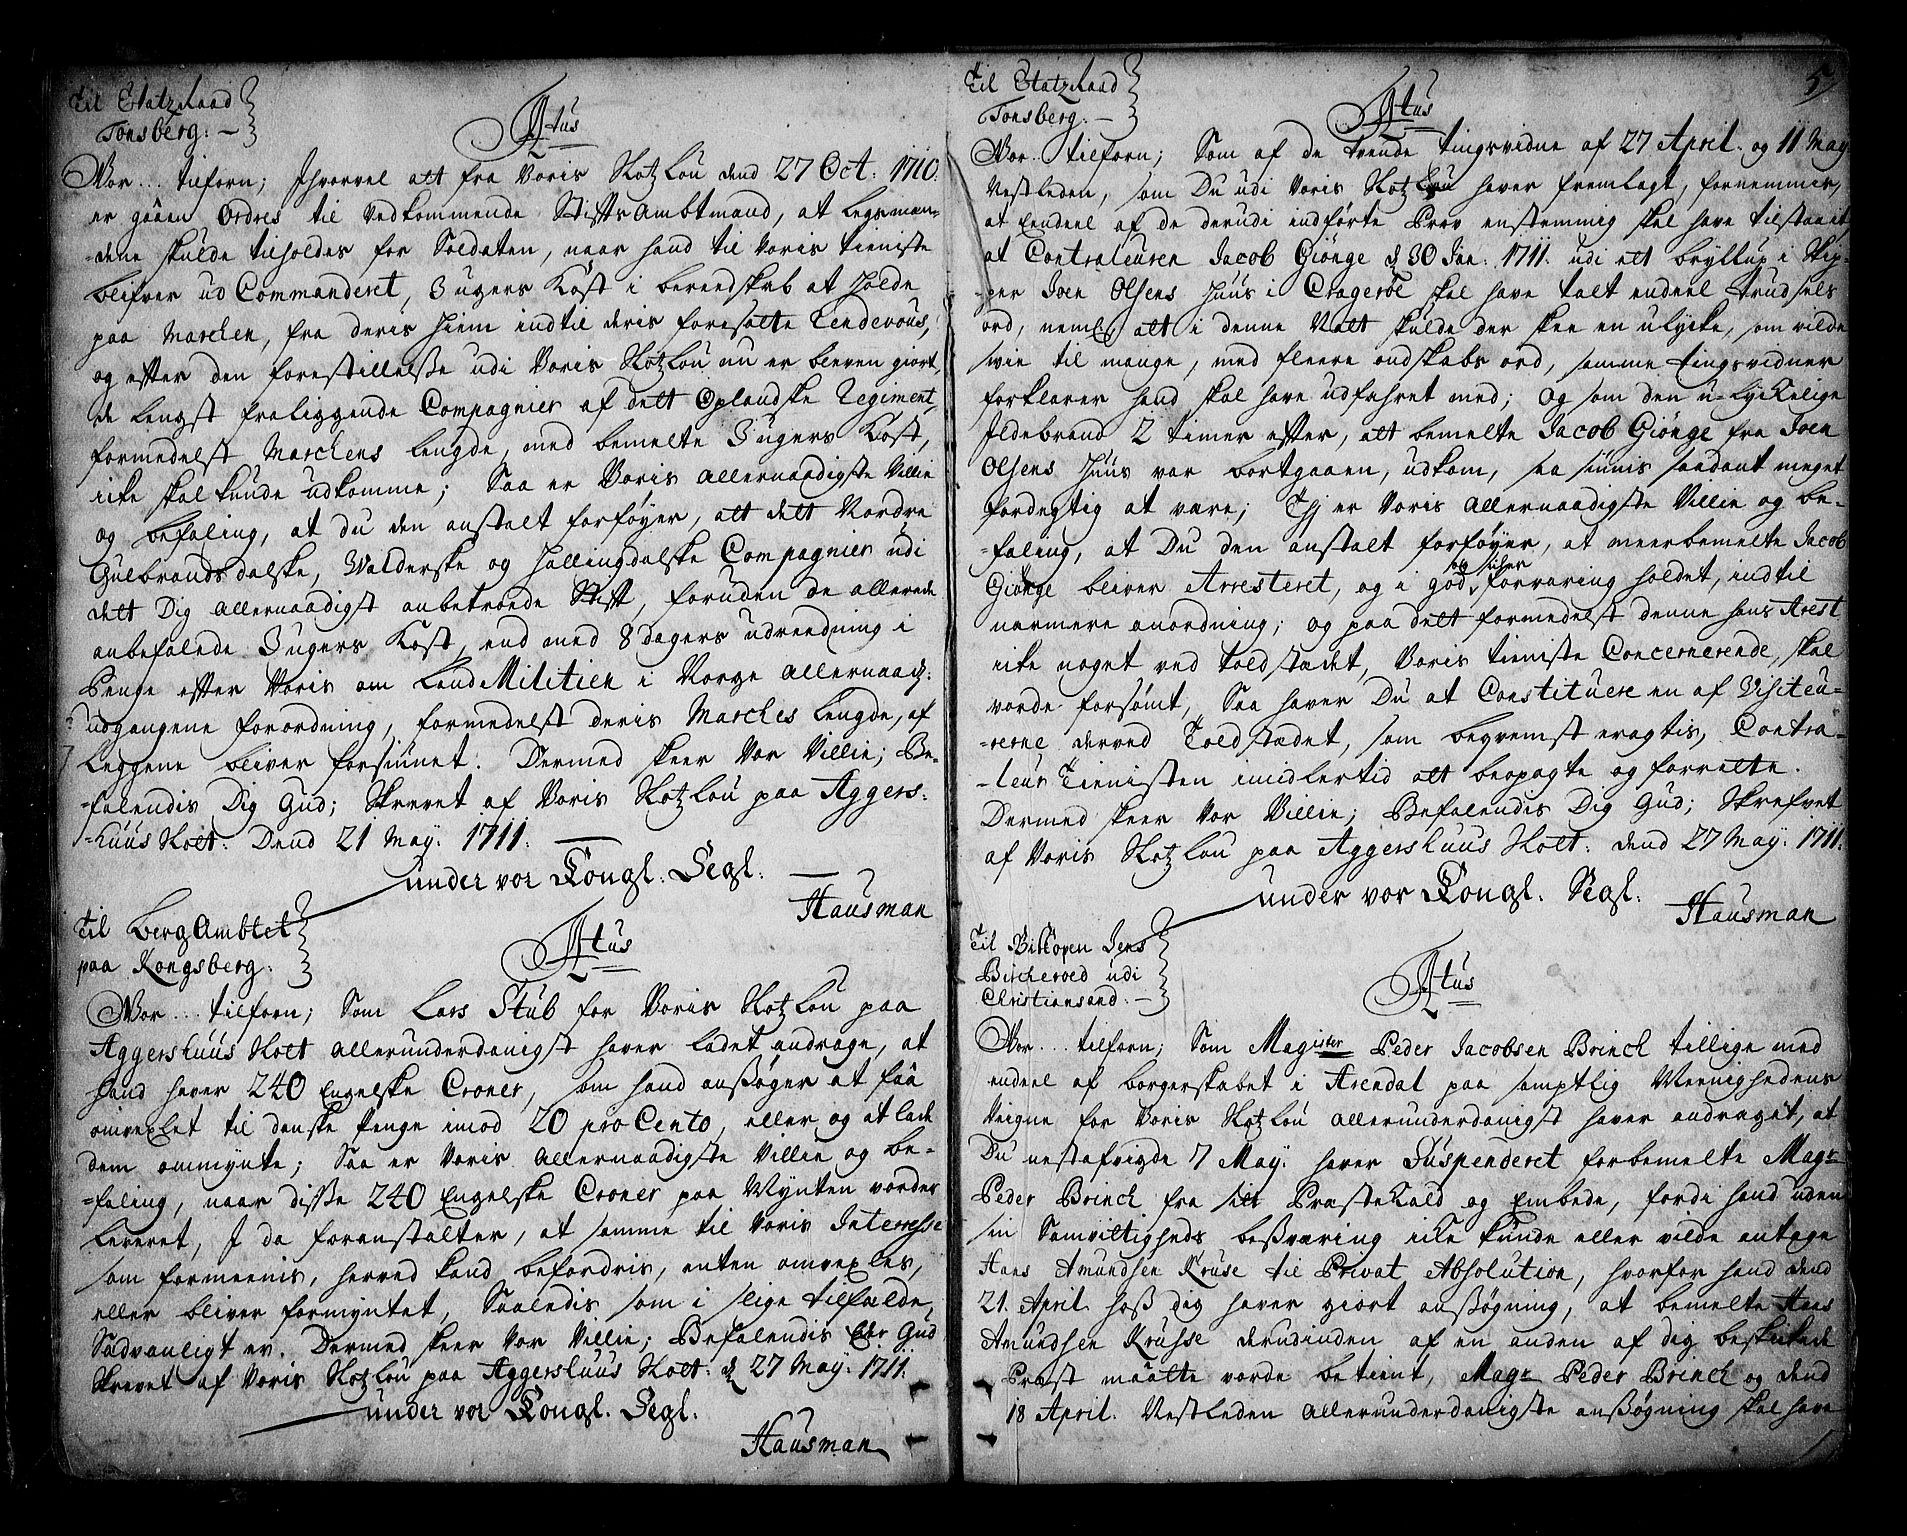 Til Etatzraad
Tonsberg: —
Ftus
Vor... tilforn; Ihvorvel att fra Voris Slotzlou dend 27 Oct: 1710.
er gaaen Ordres til Vedkommende Stifts Ambtmand, at Legsmæn-
-dene skulde tilholdes for Soldaten, naar hand til Voris tieniste
blifver ud Commanderet, 3 ugers Kost i bereedskab at holde
paa Marchen, fra deris Hiem indtil deris foresatte Rendevous,
og efter den forestillelsse udi Voris Slotzlou nu er bleven giort,
de lengst fraliggende Compagnier af dett Oplandske Regiment,
formedelst Marchens lengde, med bemelte 3 ugers Kost,
icke skal kunde udkomme; Saa er Voris allernaadigste Villie
og befaling, at du den anstalt forføyer, att dett Nordre
Gulbrandsdalske, Walderske og Hallingdalske Compagnier udi
dett Dig allernaadigst anbetroede Stift, foruden de allerede
anbefalede 3 ugers Kost, end med 8 dagers udreedning i
Penge efter Voris om Land Militien i Norge allernaads:
udgangene forordning, formedelst deris Marches lengde, af
Leggene bliver forsiunet. Dermed skeer Vor Villie; Be-
-falendis Dig Gud; Skrevet af Voris Slotzlou paa Aggers-
-huus Slott: Dend 21 May: 1711.
under vor Kongl. Segl.
Hausman
Til Berg Ambtet
paa Kongsberg:
Ftus
Vor... tilforn; Som Lars Stub for Voris Slotzlou paa
Aggershuus Slott allerunderdanigst haver ladet andrage, at
hand haver 240 Engelske Croner, som hand anssøger at faa
omvexlet til danske Penge imod 20 pro Cento, eller og at lade
dem ommynte; Saa er Voris allernaadigste Villie og be-
-faling, naar disse 240 Engelske Croner paa Mynten vorder
Leveret, I da foranstalter, at samme til Voris Interesse
som formeenis, herved kand befordris, enten omvexles,
eller bliver formyntet, Saaledis som i slige tilfælde,
Sædvanligt er. Dermed skeer Vor Villie; Befalendis Eder Gud
Skrevet af Voris Slotzlou paa Aggershuus Slott: d 27 May: 1711.
under vor Kongl. Segl.
Hausman
Til Etatzraad
Tonsberg: —
Ftus
Vor... tilforn; Som af de trende tingsvidne af 27 April. og 11 May
Nestleden, som Du udi Voris Slotzlou haver fremlagt, fornemmes,
at Eendeel af de derudi indførte Prov enstemmig skal have tilstaaet
at Contraleuren Jacob Giönge d 30 Jan: 1711. udi ett bryllup i Skip-
-per Joen Olsens Huus i Cragerøe skal have talt endeel trudsels
ord, neml. att i denne Natt skulde der skee en ulycke, som vilde
svie til mange, med fleere ondskabs ord, samme tingsvidner
forklarer hand skal have udfahret med; Og som den u-lyckelige
Ildebrand 2 timer efter, att bemelte Jacob Giönge fra Joen
Olsens Huus var bortgaaen, udkom, saa siunis saadant meget
fordegtig at være; Thj er Voris allernaadigste Villie og be-
-faling, at Du den anstalt forføyer, at meerbemelte Jacob
Giönge bliver Arresteret, og i god og siker forvaring holdet, indtil
nærmere anordning; og paa dett formedelst denne hans Arest
icke noget ved Toldstædet, Voris tieniste Concernerende, skal
vorde forsømt, Saa haver Du at Constituere en af Visiteu-
-rerne derved Toldstædet, som beqvemst eragtis, Contra-
-leur Tienisten imidlertid att beopagte og forrette.
Dermed skeer Vor Villie; Befalendis Dig Gud; Skrefvet
af Voris Slotzlou paa Aggershuus Slott: dend 27 May: 1711.
under vor Kongl. Segl.
Hausman
Til Biskopen Jens
Bircheroed udi
Christiansand: —
Ftus
Vor... tilforn; Som Magister Peder Jacobsen Brinch tillige med
endeel af borgerskabet i Arendal paa samptlig Meenighedens
Veigne for Voris Slotzlou allerunderdanigst haver andraget, at
Du nestafvigde 7 May: haver Suspenderet forbemelte Magr
Peder Brinch fra sitt Præste Kald og Embede, fordi hand uden
sin Samvittigheds besværing icke kunde eller vilde antage
Hans Amundsen Kruse til Privat Absolution, hvorfor hand dend
21. April hoss dig haver giort anssøgning, at bemelte Hans
Amundsen Krusse derudinden af en anden af dig beskikede
Præst maatte vorde betient, Magr Peder Brinch og dend
18 April. Nestleden allerunderdanigste anssøgning skal have